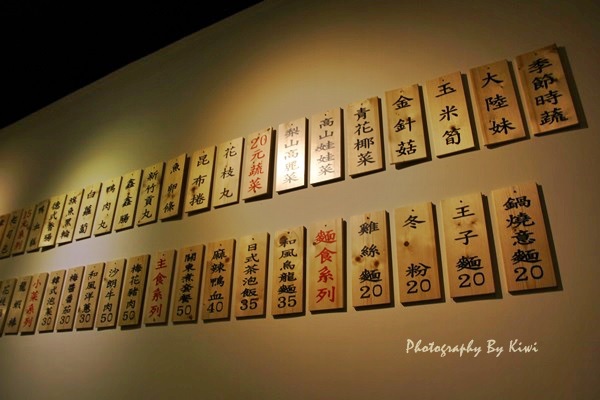 德式香腸
旗魚黑輪
白蘿蔔
鴨肉丸
鑫鑫腸
新竹貢丸
魚卵條
昆布捲
花枝丸
20元蔬菜
梨山高麗菜
高山娃娃菜
青花椰菜
金針菇
玉米筍
大陸妹
季節時蔬
小菜系列
韓式泡菜30
和風洋蔥30
沙朗牛肉50
梅花豬肉50
主食系列
關東煮套餐50
麻辣鴨血40
日式茶泡飯35
和風烏龍麵35
麵食系列
雞絲麵20
冬粉20
王子麵20
鍋燒意麵20
Photography By Kiwi